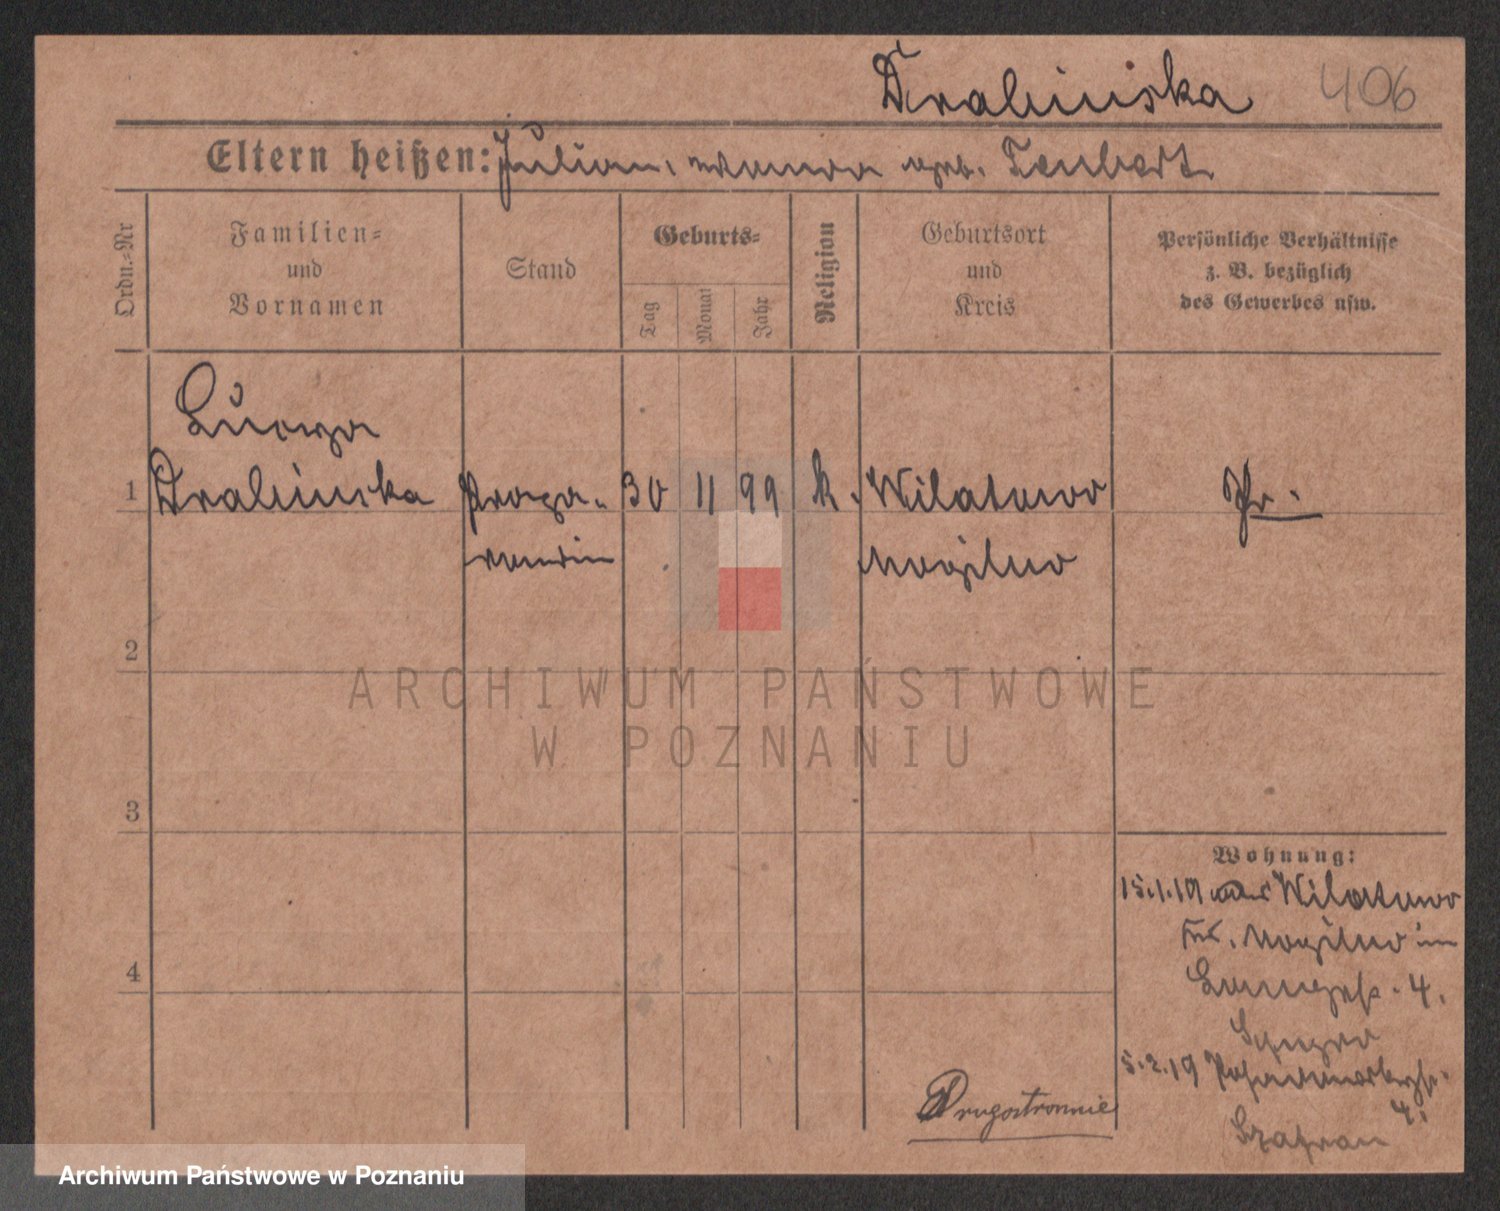 Drabinska 406
Eltern heißen: Julian, geb.
Ordn.=Nr
Familien=
und
Vornamen
Stand
Geburts=
Tag
Monat
Jahr
Religion
Geburtsort
und
Kreis
Persönliche Verhältnisse
z. B. bezüglich
des Gewerbes usw.
1 Drabinska 30 11 99 k. Wilatowo Pr.
Mogilno
2
ARCHIWUM PAŃSTWOWE
W POZNANIU
3
Wohnung:
15.1.19 aus Wilatowo
Mogilno in
4
4.
5.2.19
4.
Drugostronnie
Szafran
Archiwum Państwowe w Poznaniu